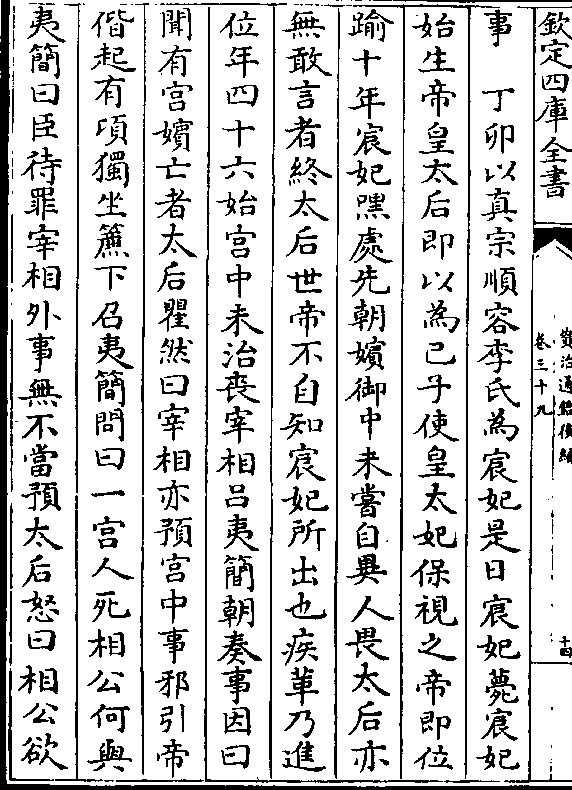 欽定四庫全書
資治通鑑後編
卷三十九
十四
事　丁卯以真宗順容李氏為宸妃是日宸妃薨宸妃
始生帝皇太后即以為己子使皇太妃保視之帝即位
踰十年宸妃嘿處先朝嬪御中未嘗自異人畏太后亦
無敢言者終太后世帝不自知宸妃所出也疾革乃進
位年四十六始宮中未治喪宰相呂夷簡朝奏事因曰
聞有宮嬪亡者太后瞿然曰宰相亦預宮中事邪引帝
偕起有頃獨坐簾下召夷簡問曰一宮人死相公何與
夷簡曰臣待罪宰相外事無不當預太后怒曰相公欲